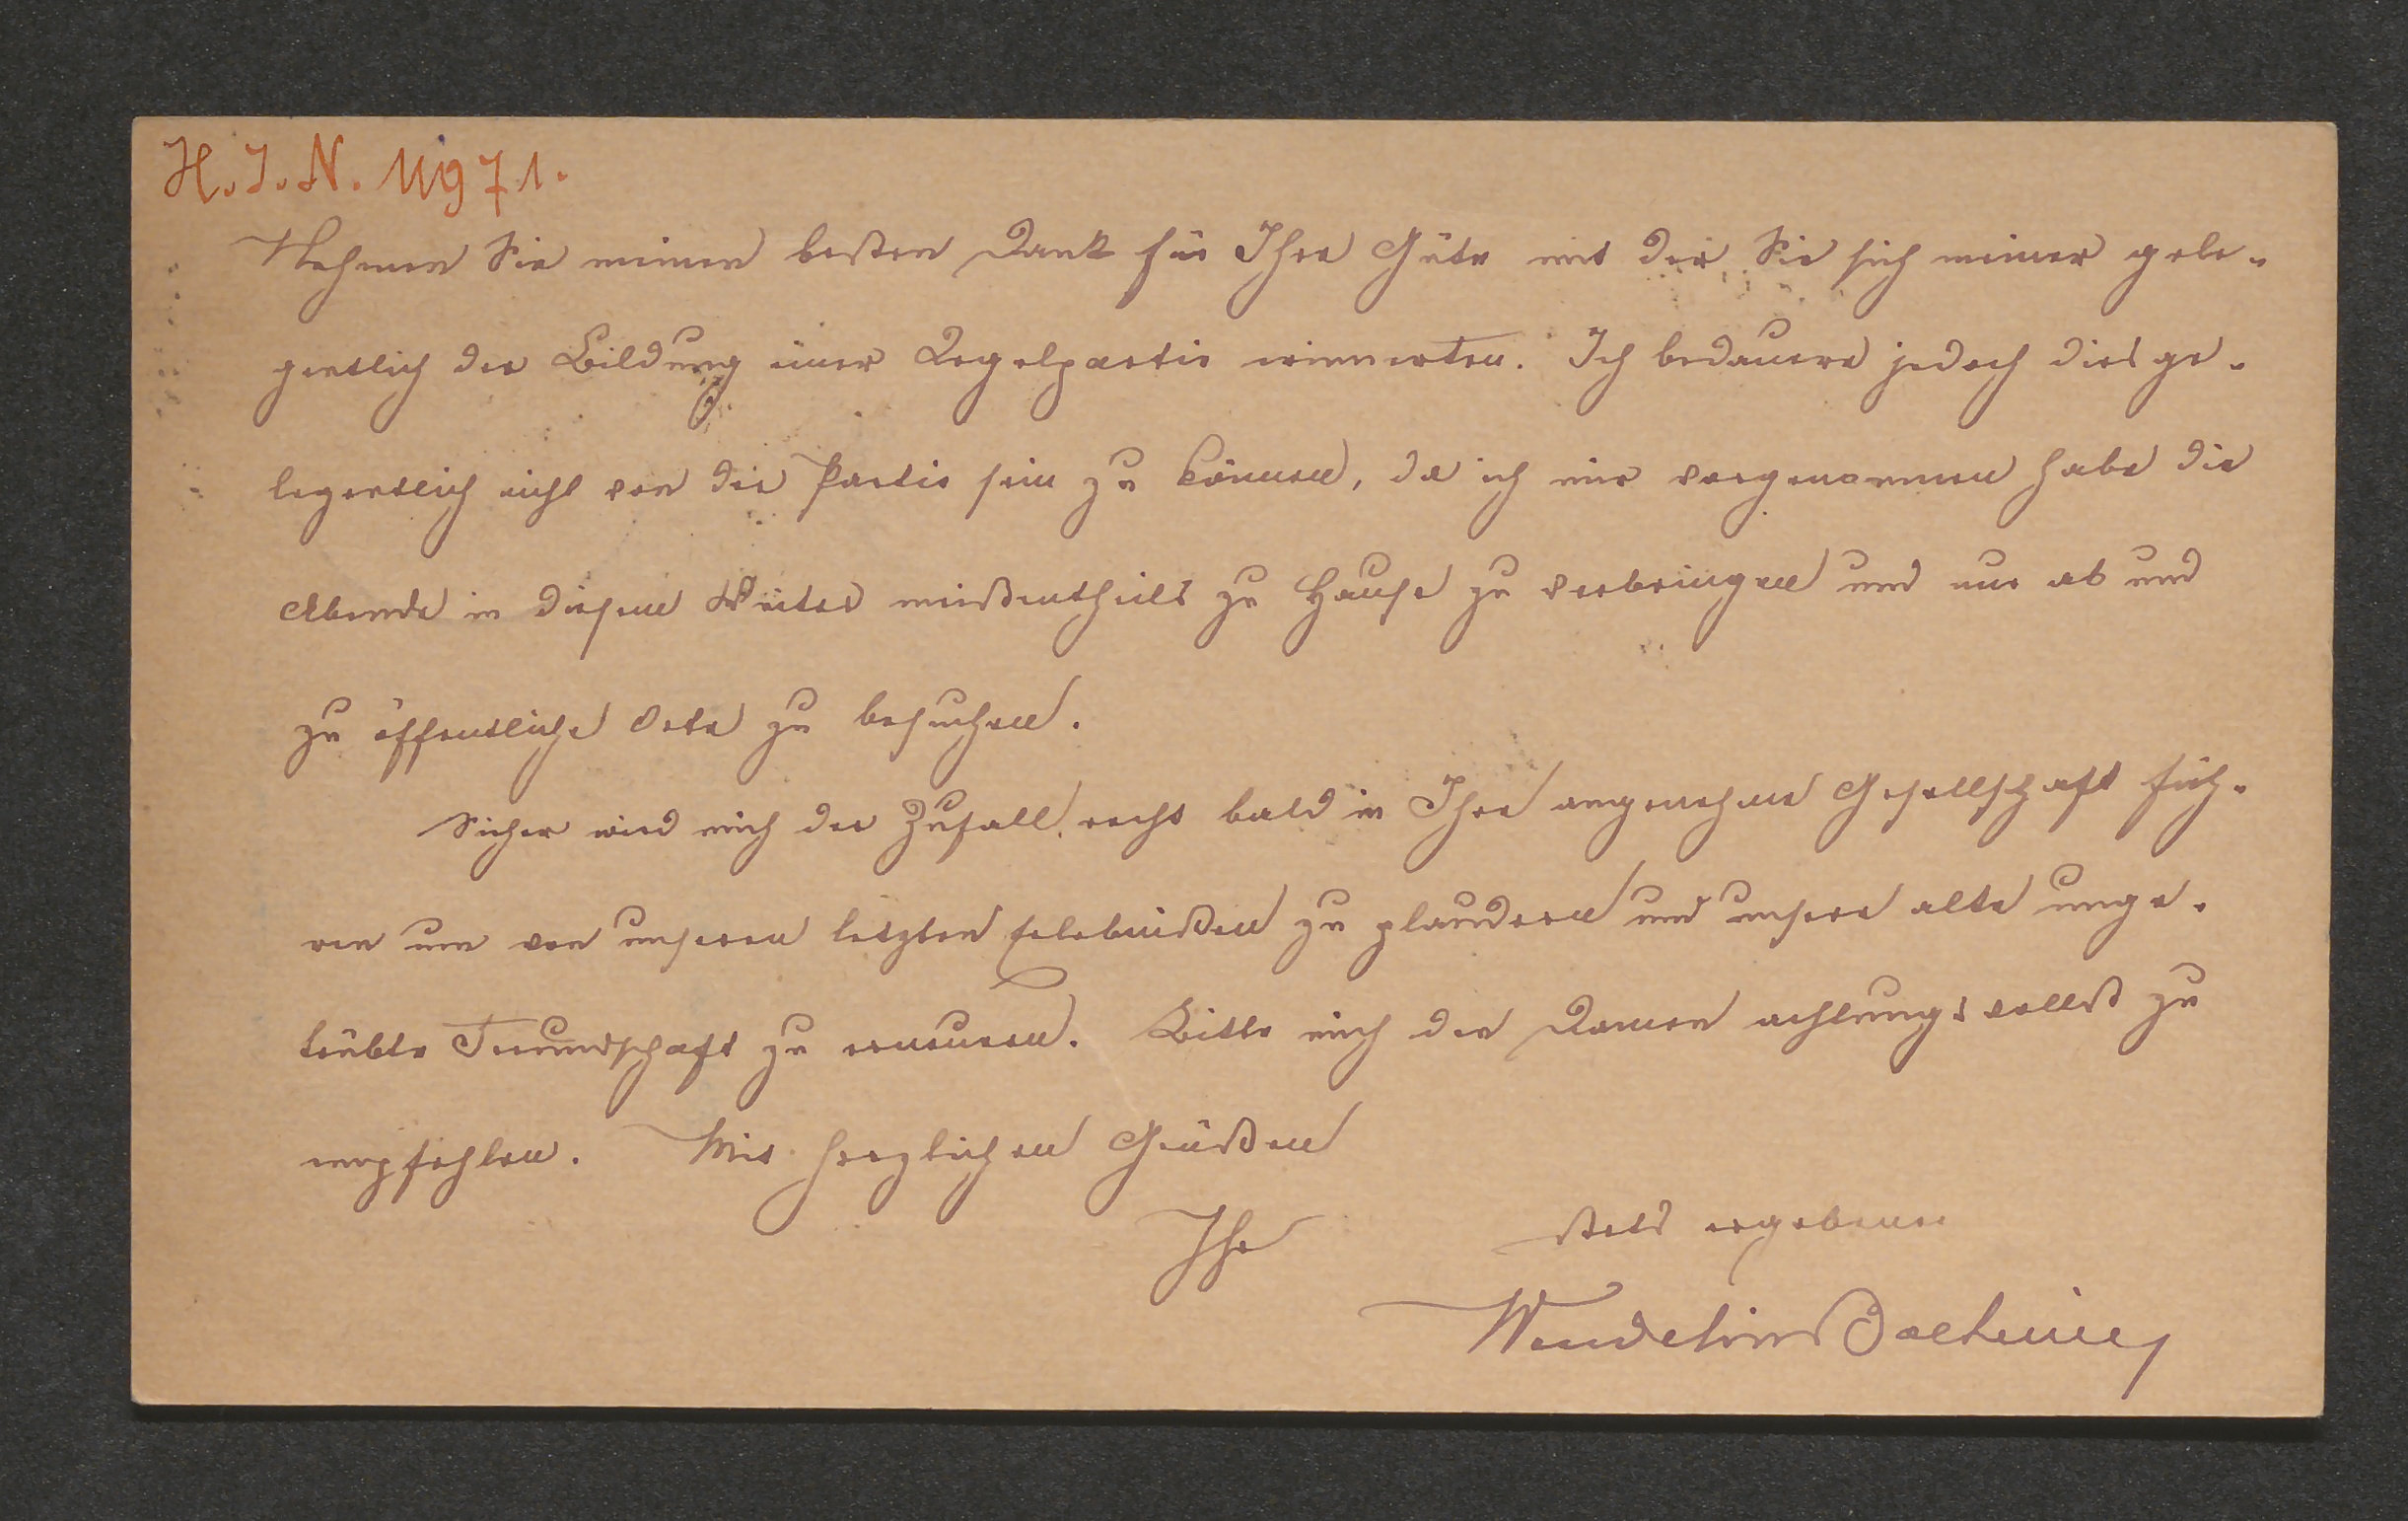 H.I.N. 11971.
Nehmen Sie meinen besten Dank für Ihre Güte mit der Sie sich meiner gele-
gentlich der Bildung einer Kegelpartie erinnerten. Ich bedauere jedoch dies ge-
legentlich nicht von der Partie sein zu können, da ich mir vorgenommen habe die
Abende in diesem Winter meistentheils zu Hause zu verbringen und nur ab und
zu öffentliche Orte zu besuchen.
Sicher wird mich der Zufall recht bald in Ihre angenehme Gesellschaft füh-
ren um von unseren letzten Erlebnißen zu plaudern und unsere alte unge-
trübte Freundschaft zu erneuern. Bitte mich den Damen achtungsvollst zu
empfehlen. Mit herzlichen Grüßen
Ihr stets ergebener
Wendelin